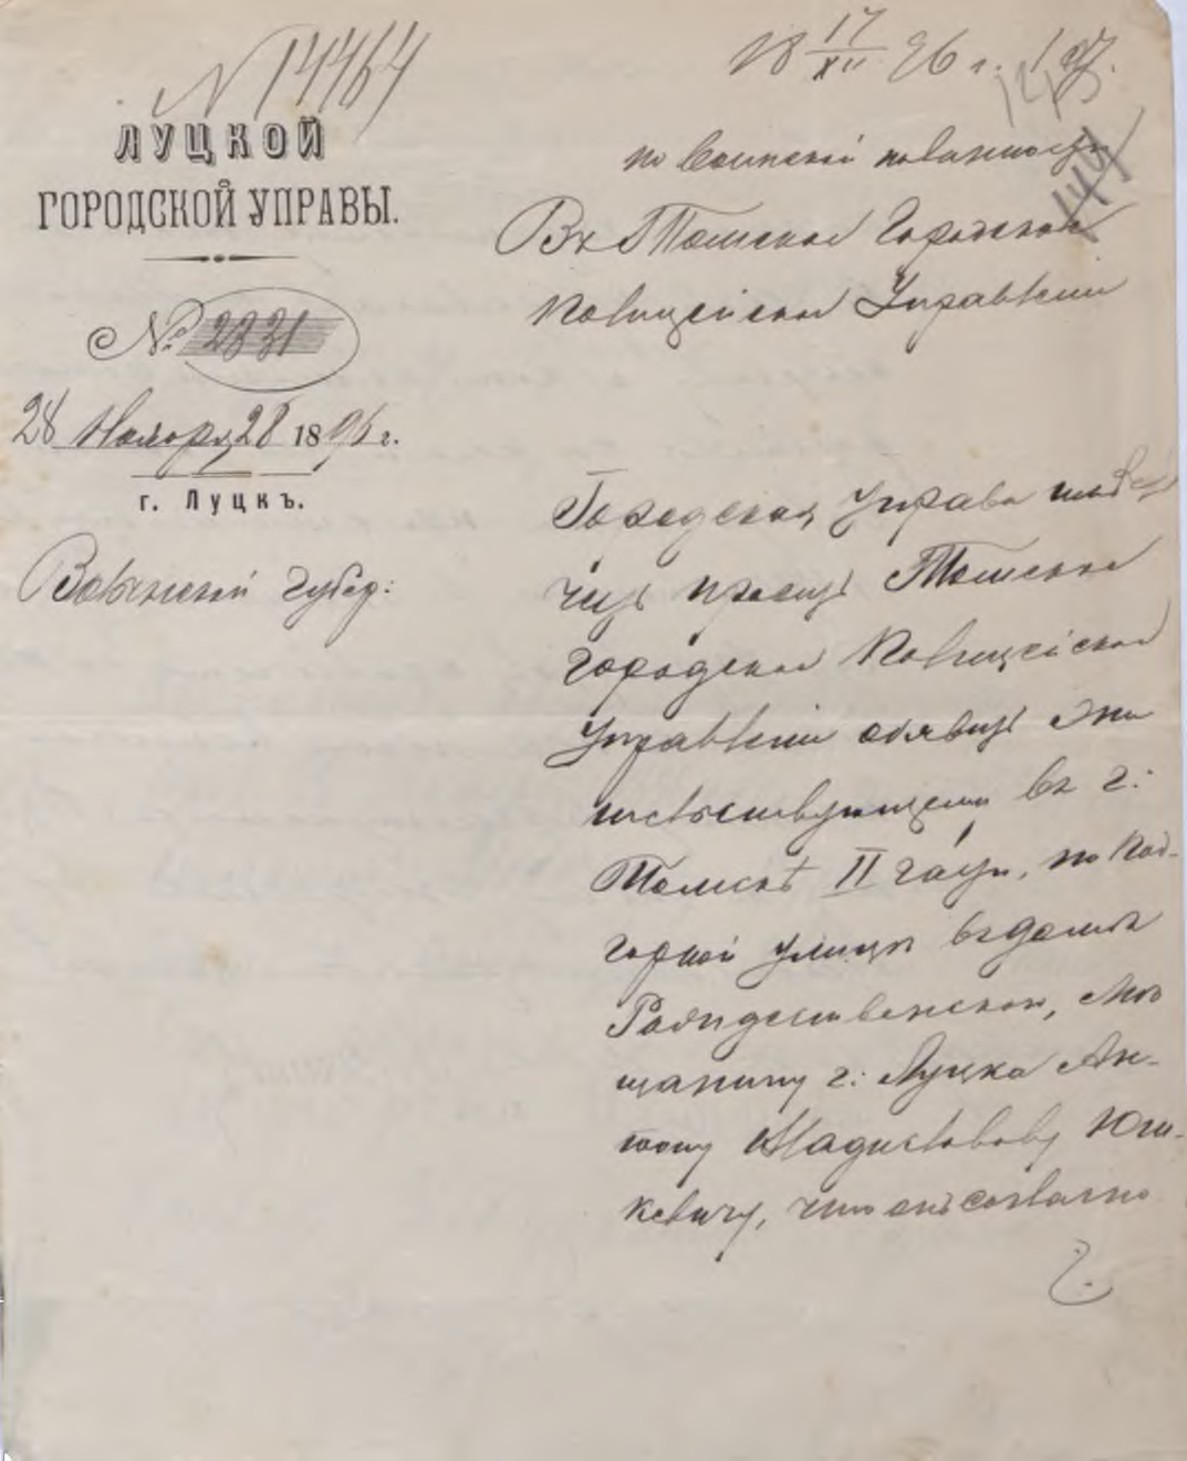 N 14464
ЛУЦКОЙ
ГОРОДСКОЙ УПРАВЫ.
№ 2831
28 Ноября 28 1896 г.
г. Луцкъ.
Волынской Губер:
18 17/XII 96 г.
144
по воинской повинности
Въ Томское Городское
Полицейское Управленіе
Городская Управа
проситъ Томское
Городское Полицейское
Управленіе объявить
въ г:
Томскѣ II части, по Под-
горной улицѣ въ домѣ
Рождественской, Мѣ
щанину г: Луцка Ан-
тону Юш-
кевичу, что онъ согласно